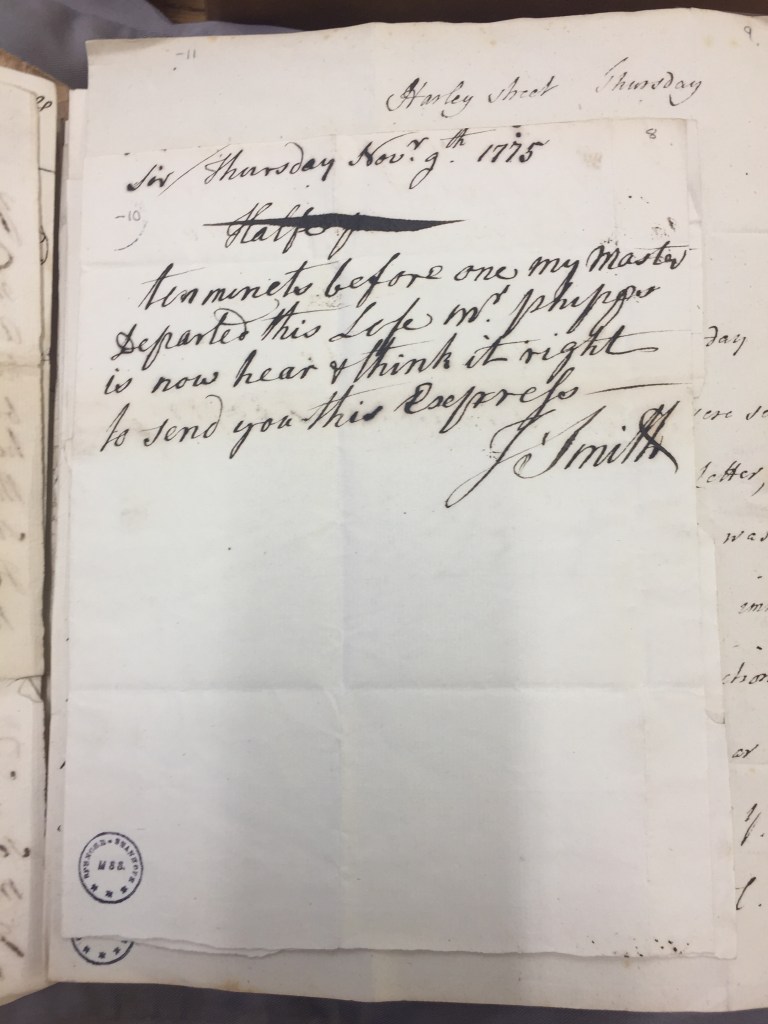 -11
9.
Harley street Thursday
8
Sir Thursday Novr. 9th. 1775
-10
Half p
ten minets before one my Master
Departed this Life Mr. phipps
is now hear & think it right
to send you this Express
J Smith
day
Letter,
was
ar
y.
SPENCER-STANHOPE
MSS.